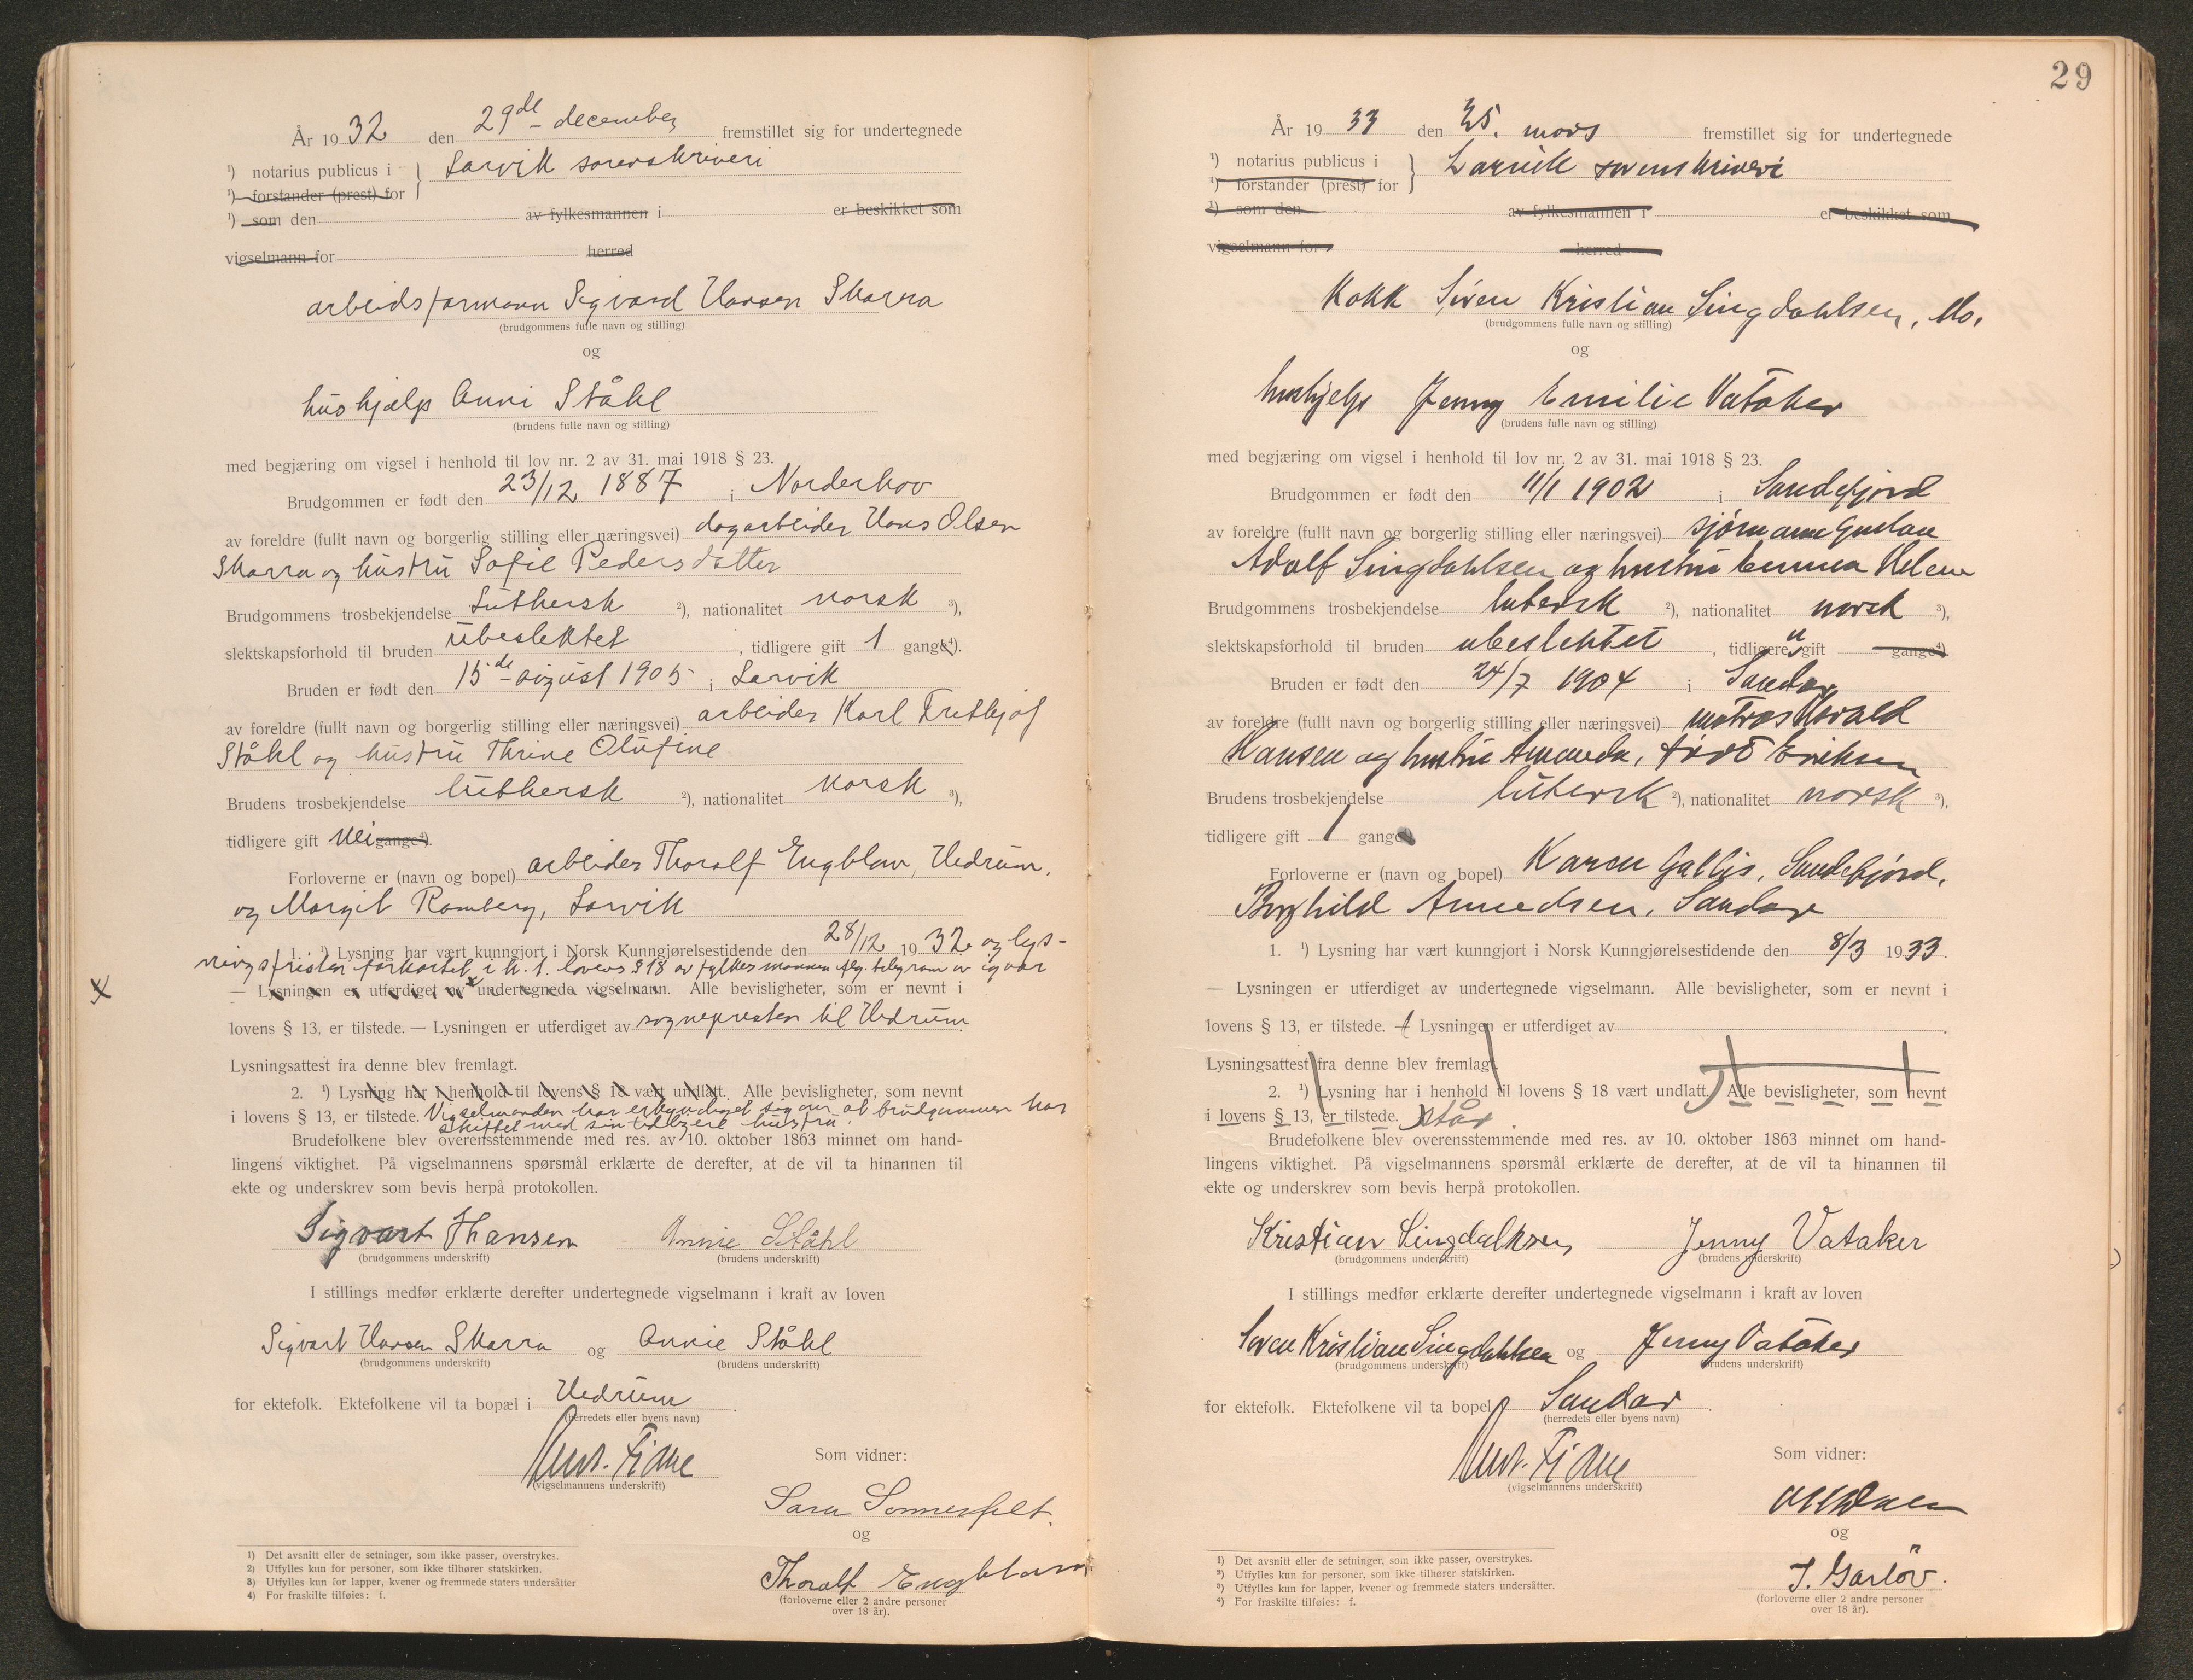 År 1932 den 29de december fremstillet sig for undertegnede
¹) notarius publicus i } Larvik sorenskriveri
¹) forstander (prest) for
¹) som den av fylkesmannen i er beskikket som
vigselmann for herred
arbeidsformann Sigvard Hansen Skarra
(brudgommens fulle navn og stilling)
og
hushjælp Anni Ståhl
(brudens fulle navn og stilling)
med begjæring om vigsel i henhold til lov nr. 2 av 31. mai 1918 § 23.
Brudgommen er født den 23/12 1887 i Norderhov
av foreldre (fullt navn og borgerlig stilling eller næringsvei) dagarbeider Hans Olsen
Skarra og hustru Sofie Pedersdatter
Brudgommens trosbekjendelse luthersk ²), nationalitet norsk ³),
slektskapsforhold til bruden ubeslektet, tidligere gift 1 gange⁴).
Bruden er født den 15de august 1905 i Larvik
av foreldre (fullt navn og borgerlig stilling eller næringsvei) arbeider Karl Frithjof
Ståhl og hustru Thrine Olufine
Brudens trosbekjendelse luthersk ²), nationalitet norsk ³),
tidligere gift nei gange⁴).
Forloverne er (navn og bopel) arbeider Thoralf Engblom, Hedrum,
og Margit Ramberg, Larvik
1. ¹) Lysning har vært kunngjort i Norsk Kunngjørelsestidende den 28/12 1932 og lys-
ningsfristen forkortet i h. t. lovens § 18 av fylkesmannen iflg. telegram av igaar
x — Lysningen er utferdiget av x undertegnede vigselmann. Alle bevisligheter, som er nevnt i
lovens § 13, er tilstede. — Lysningen er utferdiget av sognepresten til Hedrum
Lysningsattest fra denne blev fremlagt.
2. ¹) Lysning har i henhold til lovens § 18 vært undlatt. Alle bevisligheter, som nevnt
i lovens § 13, er tilstede. Vigselmanden har erkyndiget sig om at brudgommen har
skiftet med sin tidligere hustru.
Brudefolkene blev overensstemmende med res. av 10. oktober 1863 minnet om hand-
lingens viktighet. På vigselmannens spørsmål erklærte de derefter, at de vil ta hinannen til
ekte og underskrev som bevis herpå protokollen.
Sigvart Hansen Annie Ståhl
(brudgommens underskrift) (brudens underskrift)
I stillings medfør erklærte derefter undertegnede vigselmann i kraft av loven
Sigvart Hansen Skarra og Annie Ståhl
(brudgommens underskrift) (brudens underskrift)
for ektefolk. Ektefolkene vil ta bopæl i Hedrum.
(herredets eller byens navn)
Fiane
(vigselmannens underskrift)
Som vidner:
Sara Sonnesfelt.
og
Thoralf Engblom
(forloverne eller 2 andre personer
over 18 år).
1) Det avsnitt eller de setninger, som ikke passer, overstrykes.
2) Utfylles kun for personer, som ikke tilhører statskirken.
3) Utfylles kun for lapper, kvener og fremmede staters undersåtter
4) For fraskilte tilføies: f.
29
År 1933 den 25. mars fremstillet sig for undertegnede
¹) notarius publicus i } Larvik sorenskriveri
¹) forstander (prest) for
¹) som den av fylkesmannen i er beskikket som
vigselmann for herred
Kokk Sören Kristian Lingdahlsen, Mo.
(brudgommens fulle navn og stilling)
og
hushjelp Jenny Emilie Vataker
(brudens fulle navn og stilling)
med begjæring om vigsel i henhold til lov nr. 2 av 31. mai 1918 § 23.
Brudgommen er født den 11/1 1902 i Sandefjord
av foreldre (fullt navn og borgerlig stilling eller næringsvei) sjömann Gustav
Adolf Lingdahlsen og hustru Emma Helene
Brudgommens trosbekjendelse lutersk ²), nationalitet norsk ³),
slektskapsforhold til bruden ubeslektet, tidligere u gift gange⁴)
Bruden er født den 24/7 1904 i Sandar
av foreldre (fullt navn og borgerlig stilling eller næringsvei) matros Harald
Hansen og hustru Amanda, född Eriksen
Brudens trosbekjendelse lutersk ²), nationalitet norsk ³),
tidligere gift 1 gange
Forloverne er (navn og bopel) Karen Gallis, Sandefjord,
Borghild Amundsen, Sandar
1. ¹) Lysning har vært kunngjort i Norsk Kunngjørelsestidende den 8/3 1933.
— Lysningen er utferdiget av undertegnede vigselmann. Alle bevisligheter, som er nevnt i
lovens § 13, er tilstede. — Lysningen er utferdiget av
Lysningsattest fra denne blev fremlagt.
2. ¹) Lysning har i henhold til lovens § 18 vært undlatt. Alle bevisligheter, som nevnt
i lovens § 13, er tilstede. står
Brudefolkene blev overensstemmende med res. av 10. oktober 1863 minnet om hand-
lingens viktighet. På vigselmannens spørsmål erklærte de derefter, at de vil ta hinannen til
ekte og underskrev som bevis herpå protokollen.
Kristian Lingdalhsen Jenny Vataker
(brudgommens underskrift) (brudens underskrift)
I stillings medfør erklærte derefter undertegnede vigselmann i kraft av loven
Sören Kristian Lingdahlsen og Jenny Vataker
(brudgommens underskrift) (brudens underskrift)
for ektefolk. Ektefolkene vil ta bopel i Sandar.
(herredets eller byens navn)
Fiane
(vigselmannens underskrift)
Som vidner:
og
J. Garlöv.
(forloverne eller 2 andre personer
over 18 år).
1) Det avsnitt eller de setninger, som ikke passer, overstrykes.
2) Utfylles kun for personer, som ikke tilhører statskirken.
3) Utfylles kun for lapper, kvener og fremmede staters undersåtter.
4) For fraskilte tilføies: f.